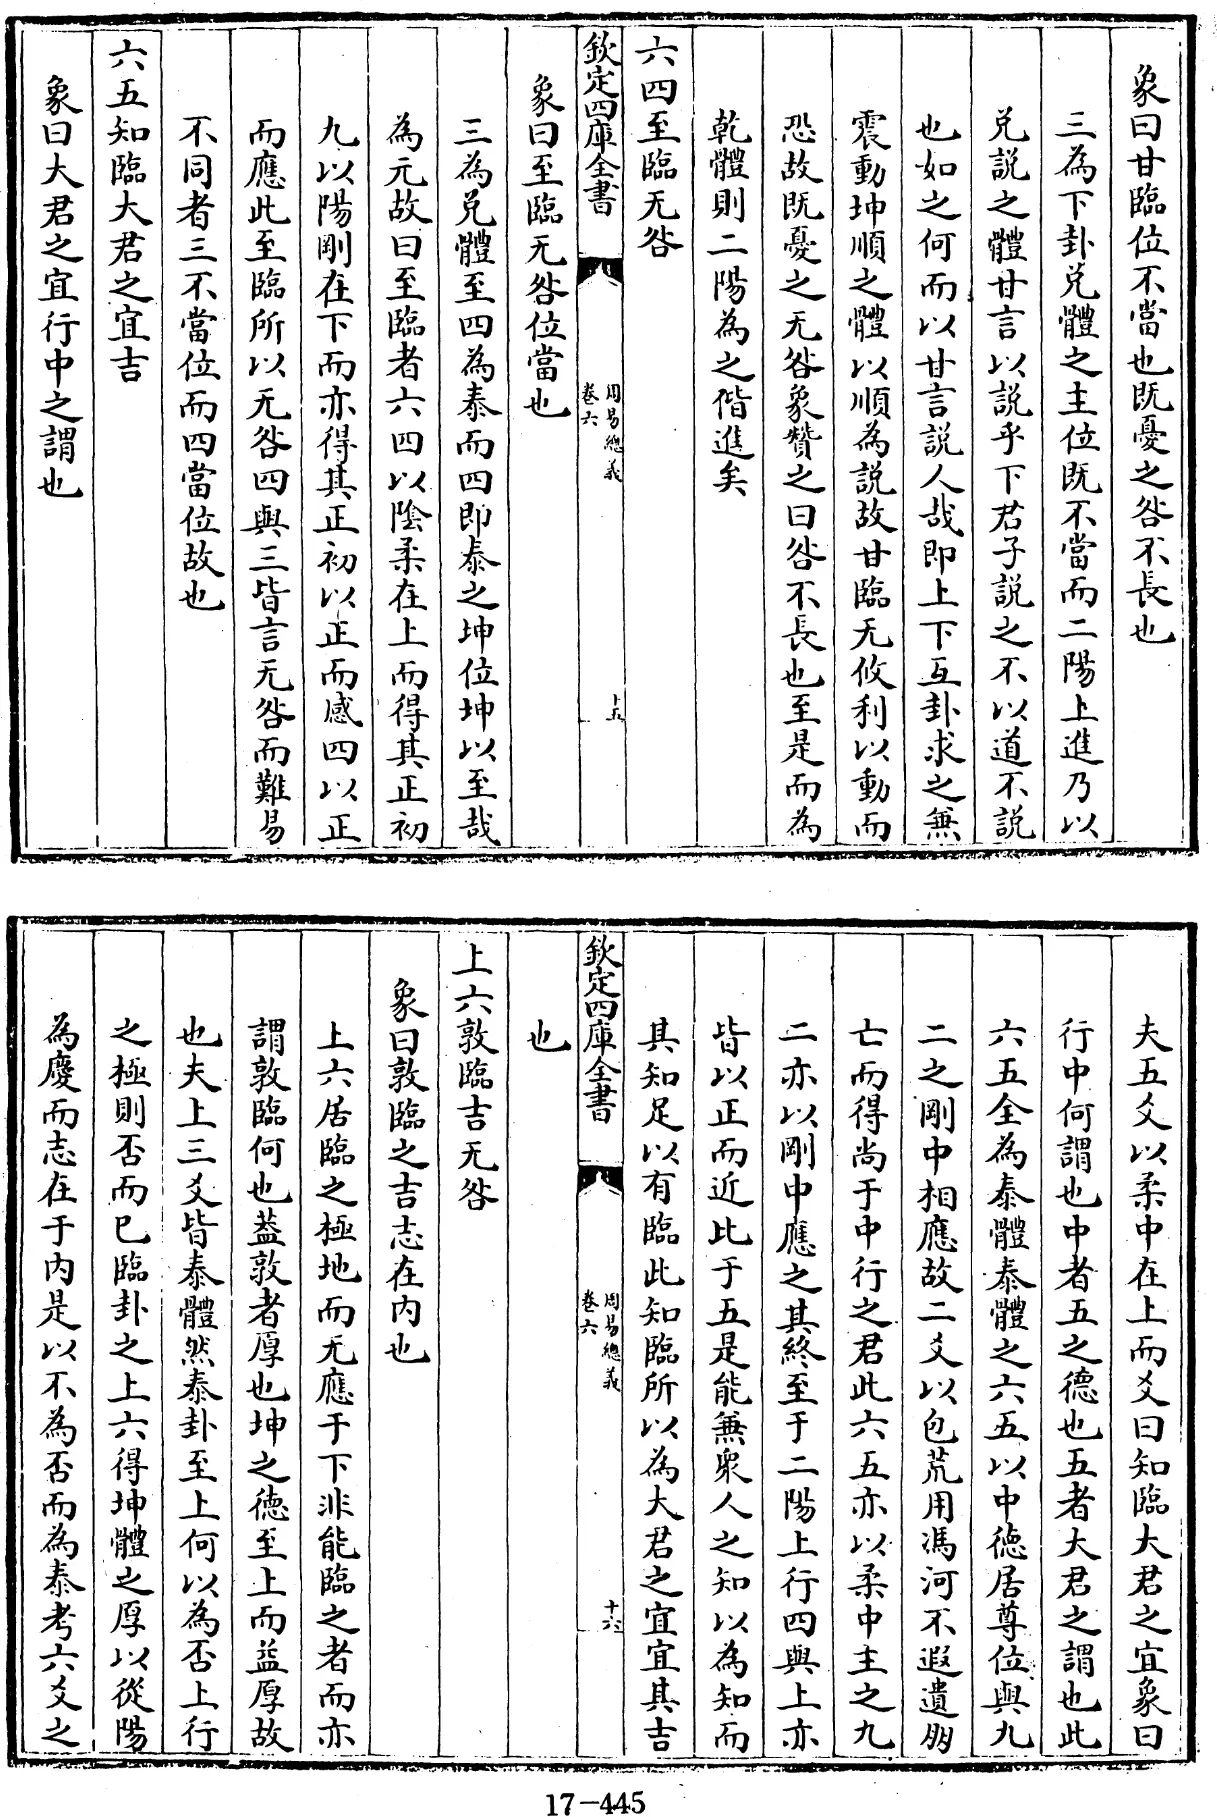 象曰甘臨位不當也既憂之咎不長也
三為下卦兌體之主位既不當而二陽上進乃以
兌說之體甘言以說乎下君子說之不以道不說
也如之何而以甘言說人哉即上下互卦求之兼
震動坤順之體以順為說故甘臨无攸利以動而
恐故既憂之无咎象贊之曰咎不長也至是而為
乾體則二陽為之偕進矣
六四至臨无咎
欽定四庫全書
周易總義
卷六
十五
象曰至臨无咎位當也
三為兌體至四為泰而四即泰之坤位坤以至哉
為元故曰至臨者六四以陰柔在上而得其正初
九以陽剛在下而亦得其正初以正而感四以正
而應此至臨所以无咎四與三皆言无咎而難易
不同者三不當位而四當位故也
六五知臨大君之宜吉
象曰大君之宜行中之謂也
夫五爻以柔中在上而爻曰知臨大君之宜象曰
行中何謂也中者五之德也五者大君之謂也此
六五全為泰體泰體之六五以中德居尊位與九
二之剛中相應故二爻以包荒用馮河不遐遺朋
亡而得尚于中行之君此六五亦以柔中主之九
二亦以剛中應之其終至于二陽上行四與上亦
皆以正而近比于五是能兼衆人之知以為知而
其知足以有臨此知臨所以為大君之宜宜其吉
欽定四庫全書
周易總義
卷六
十六
也
上六敦臨吉无咎
象曰敦臨之吉志在内也
上六居臨之極地而无應于下非能臨之者而亦
謂敦臨何也蓋敦者厚也坤之德至上而益厚故
也夫上三爻皆泰體然泰卦至上何以為否上行
之極則否而已臨卦之上六得坤體之厚以從陽
為慶而志在于内是以不為否而為泰考六爻之
17-445